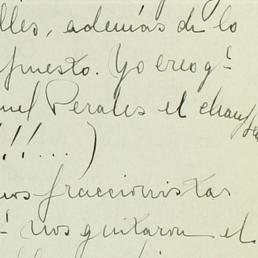 lles, además de lo
puesto. Yo creo q'
nuel Perales el chauf
!!!...)
nos fraccionistas
' nos quitaron el